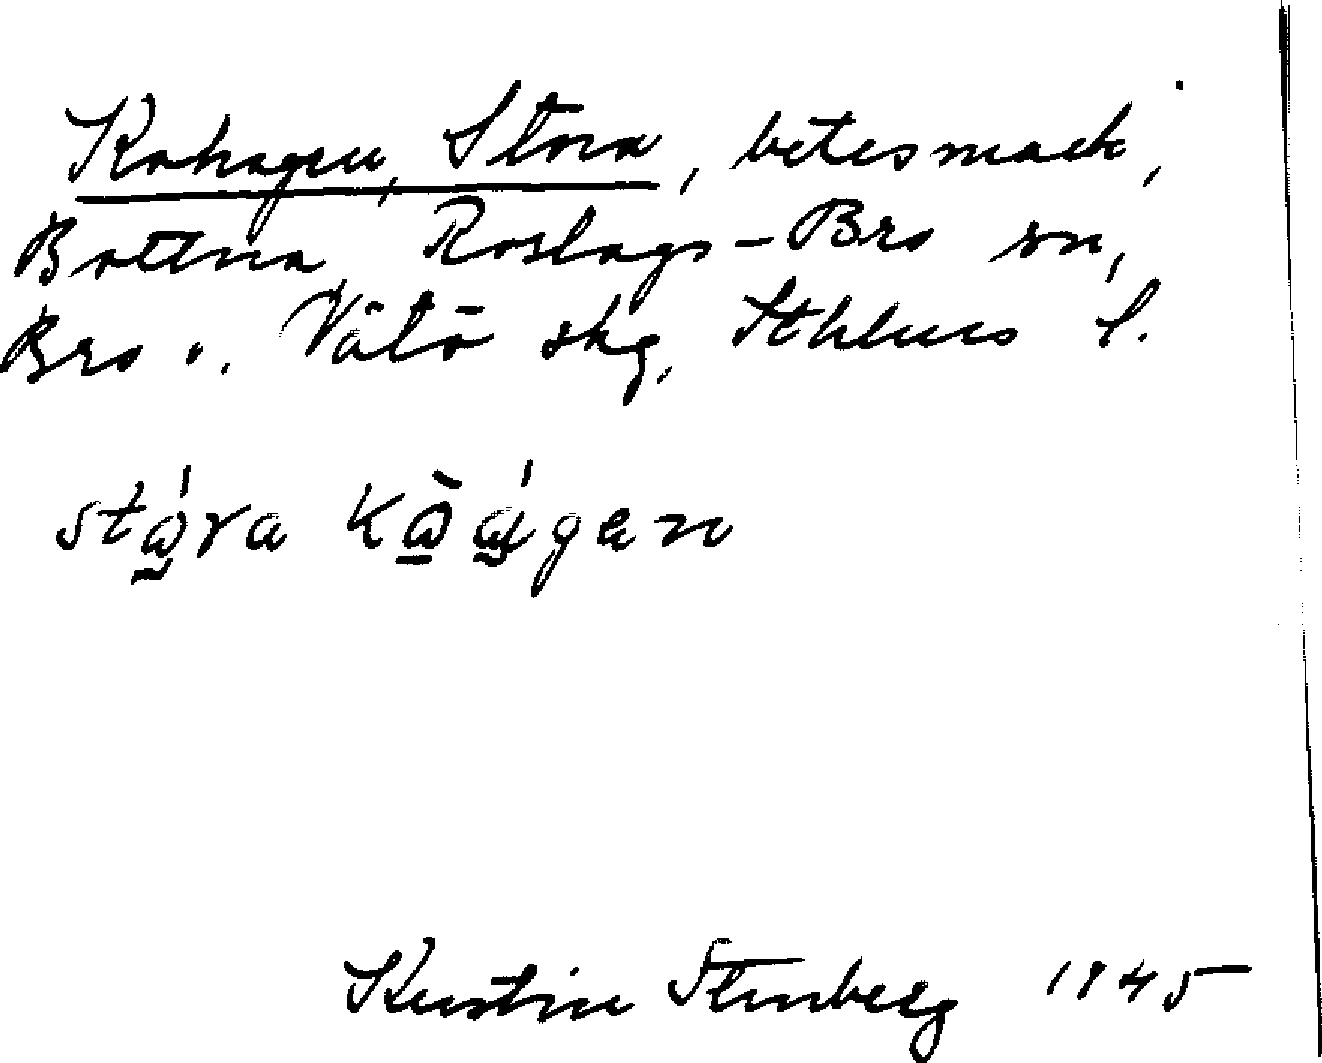 Kohagen, Stora, betesmark,
Bottna, Roslags-Bro sn,
Bro o. Vätö skg, Sthlms l.
Kerstin Stenberg 1945